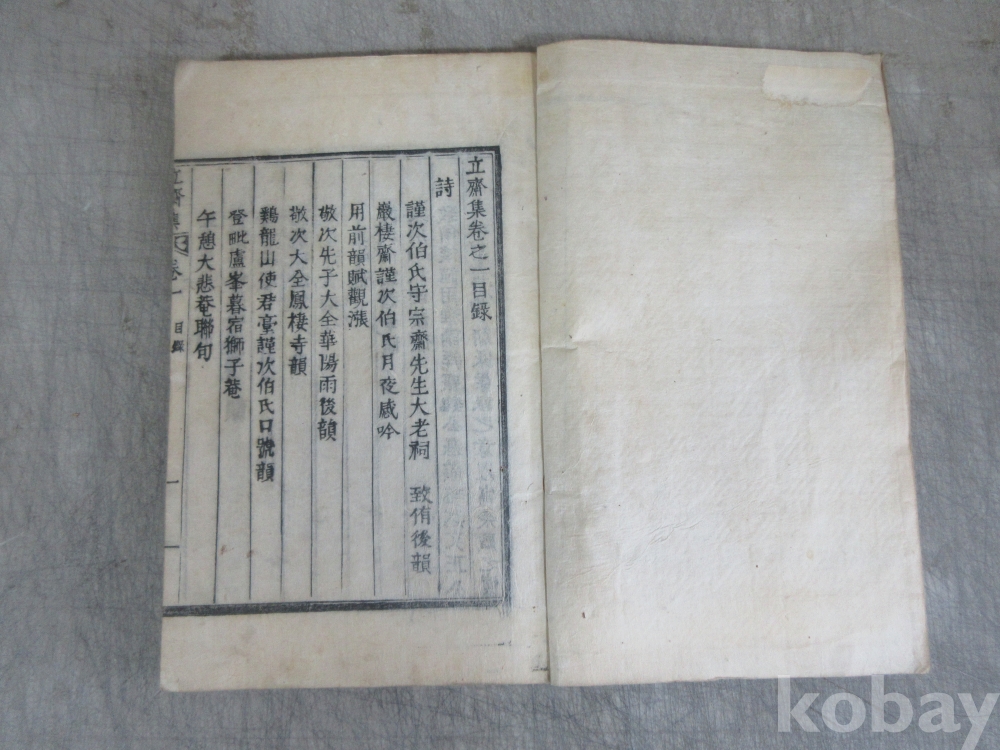 立齋集卷之一目錄
詩
謹次伯氏守宗齋先生大老祠 致侑後韻
巖棲齋謹次伯氏月夜感吟
用前韻賦觀漲
敬次先子大全華陽雨後韻
敬次大全鳳棲寺韻
鷄龍山使君臺謹次伯氏口號韻
登毗盧峯暮宿獅子菴
午憩大悲菴聯句
立齋集 卷一 目錄 一
kobay